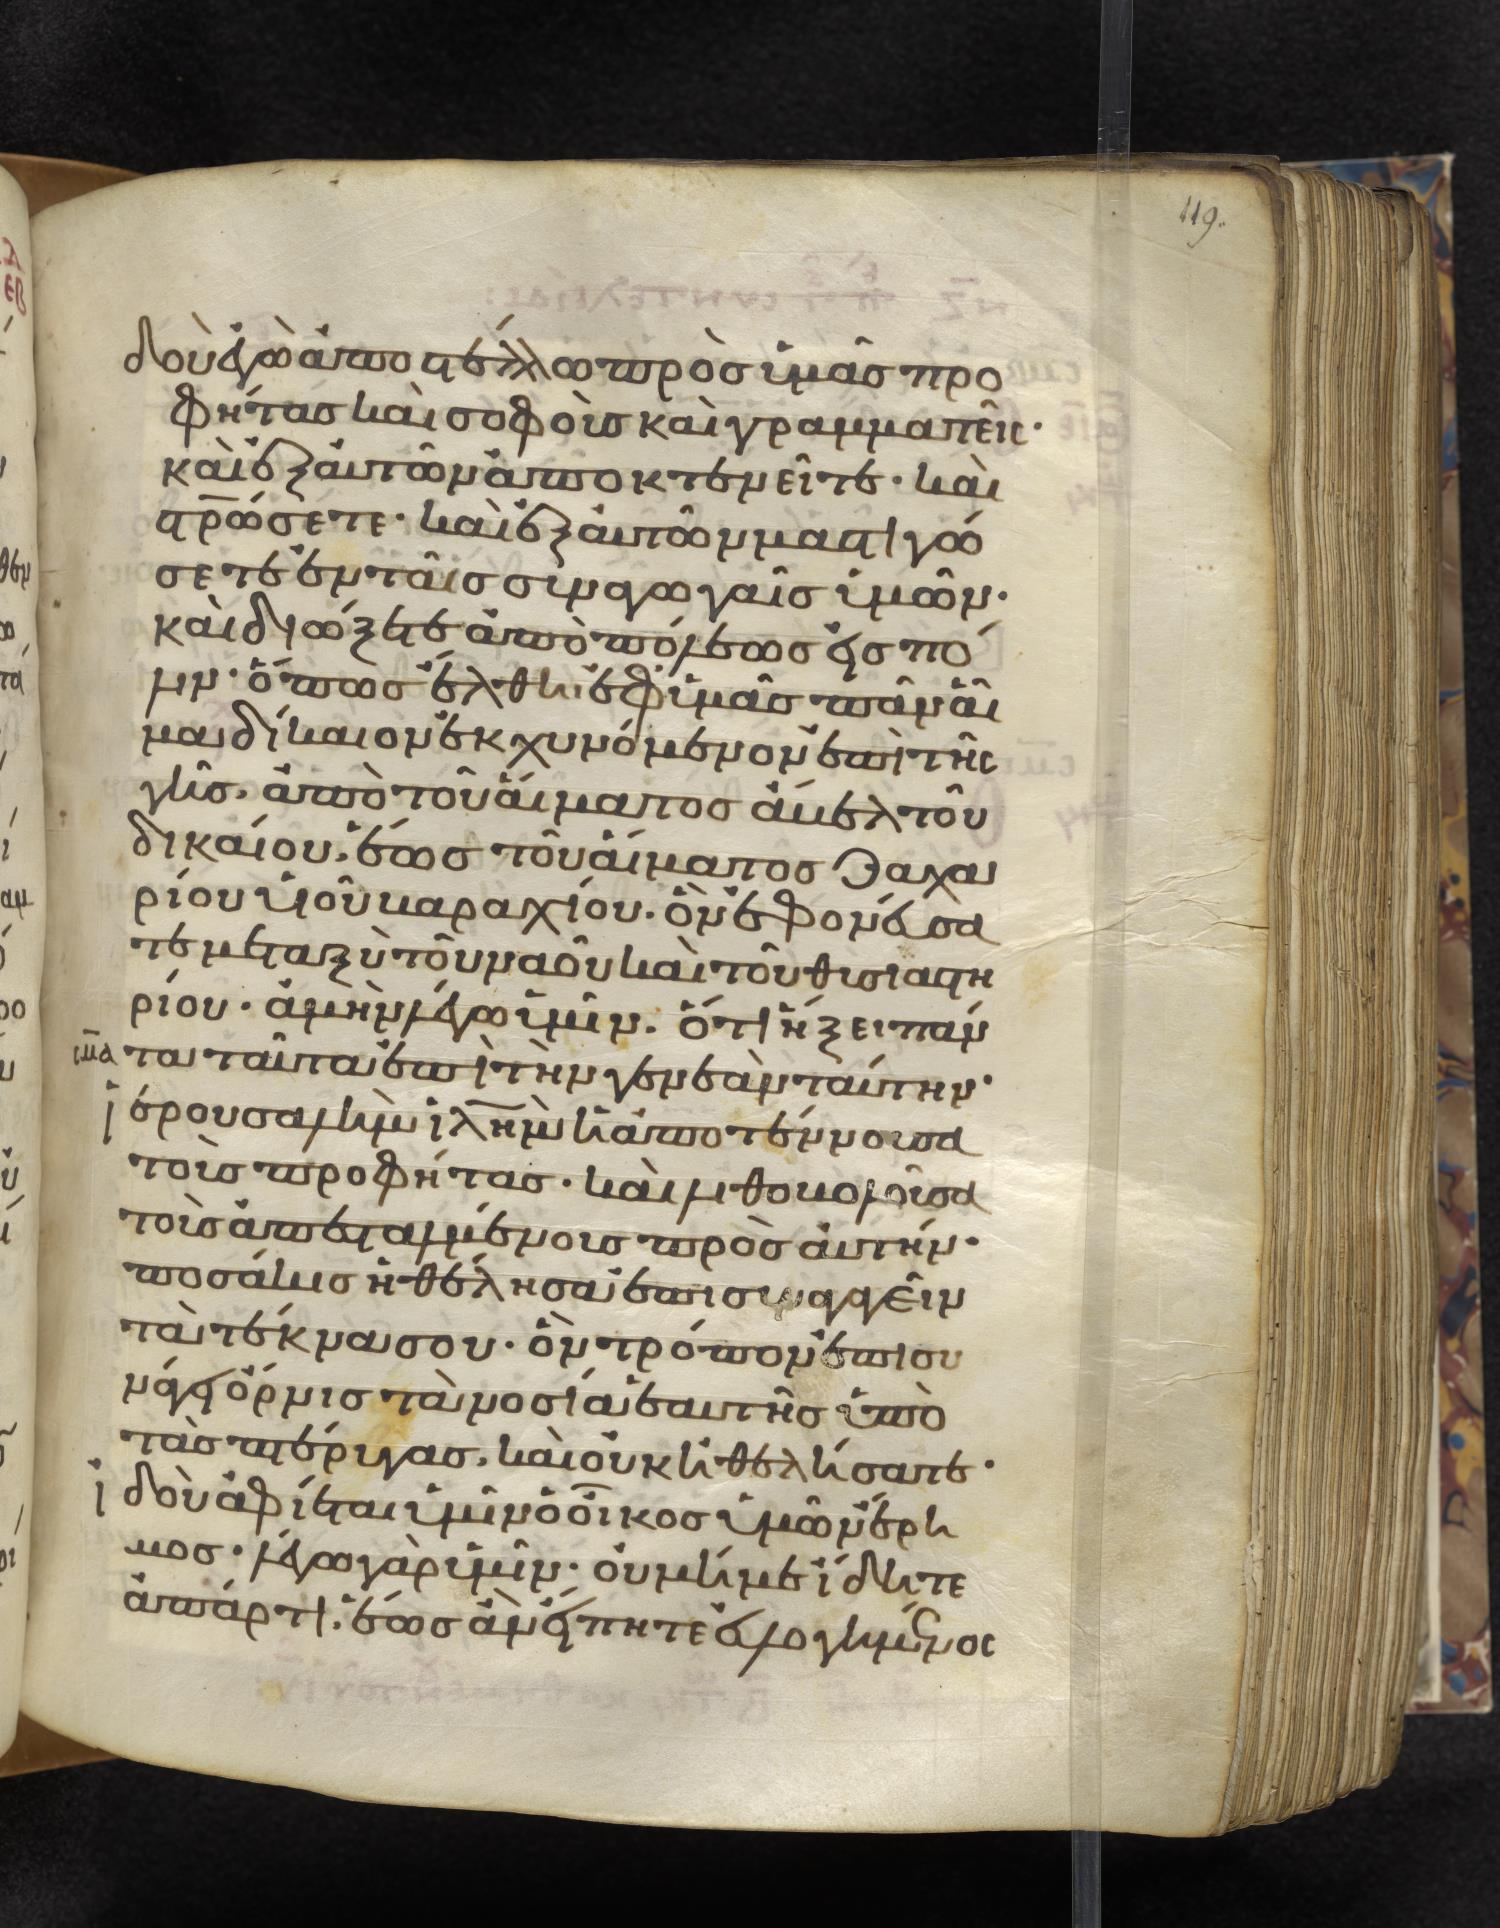 119.
δοὺ ἐγὼ ἀποστέλλω πρὸς ὑμᾶς προ
φήτας καὶ σοφοὺς καὶ γραμματεῖς·
καὶ ἐξ αὐτῶν ἀποκτενεῖτε· καὶ
στρώσετε· καὶ ἐξ αὐτῶν μαστιγώ
σετε ἐν ταῖς συναγωγαῖς ὑμῶν·
καὶ διώξετε ἀπὸ πόλεως εἰς πό
λιν· ὅπως ἔλθη ἐφ ὑμᾶς πᾶν αἷ
μα δίκαιον ἐκχυνόμενον ἐπὶ τῆς
γῆς. ἀπὸ τοῦ αἵματος ἄμβελ τοῦ
δικαίου. ἕως τοῦ αἵματος Ζαχα
ρίου υἱοῦ βαραχίου. ὃν ἐφονεύσα
τε μεταξὺ τοῦ ναοῦ καὶ τοῦ θυσιαστη
ρίου· ἀμὴν λέγω ὑμῖν. ὅτι ἥξει πάν
σμα τα ταῦτα ἐπὶ τὴν γενεὰν ταύτην·
ἱερουσαλὴμ ἱλημ ἡ ἀποτέννουσα
τοὺς προφήτας· καὶ λιθοβολοῦσα
τοὺς ἀπεσταλμένους πρὸς αὐτήν·
ποσάκις ἠθέλησα ἐπισυναγαγεῖν
τὰ τέκνα σου· ὃν τρόπον ἐπισυ
νάγει ὄρνις τὰ νοσία ἑαυτῆς ὑπὸ
τὰς πτέρυγας. καὶ οὐκ ἠθελήσατε·
ἰδοὺ ἀφίεται ὑμῖν ὁ οἶκος ὑμῶν ἔρη
μος· λέγω γὰρ ὑμῖν· οὐ μή με ἴδητε
ἀπάρτι. ἕως ἂν εἴπητε εὐλογημένος